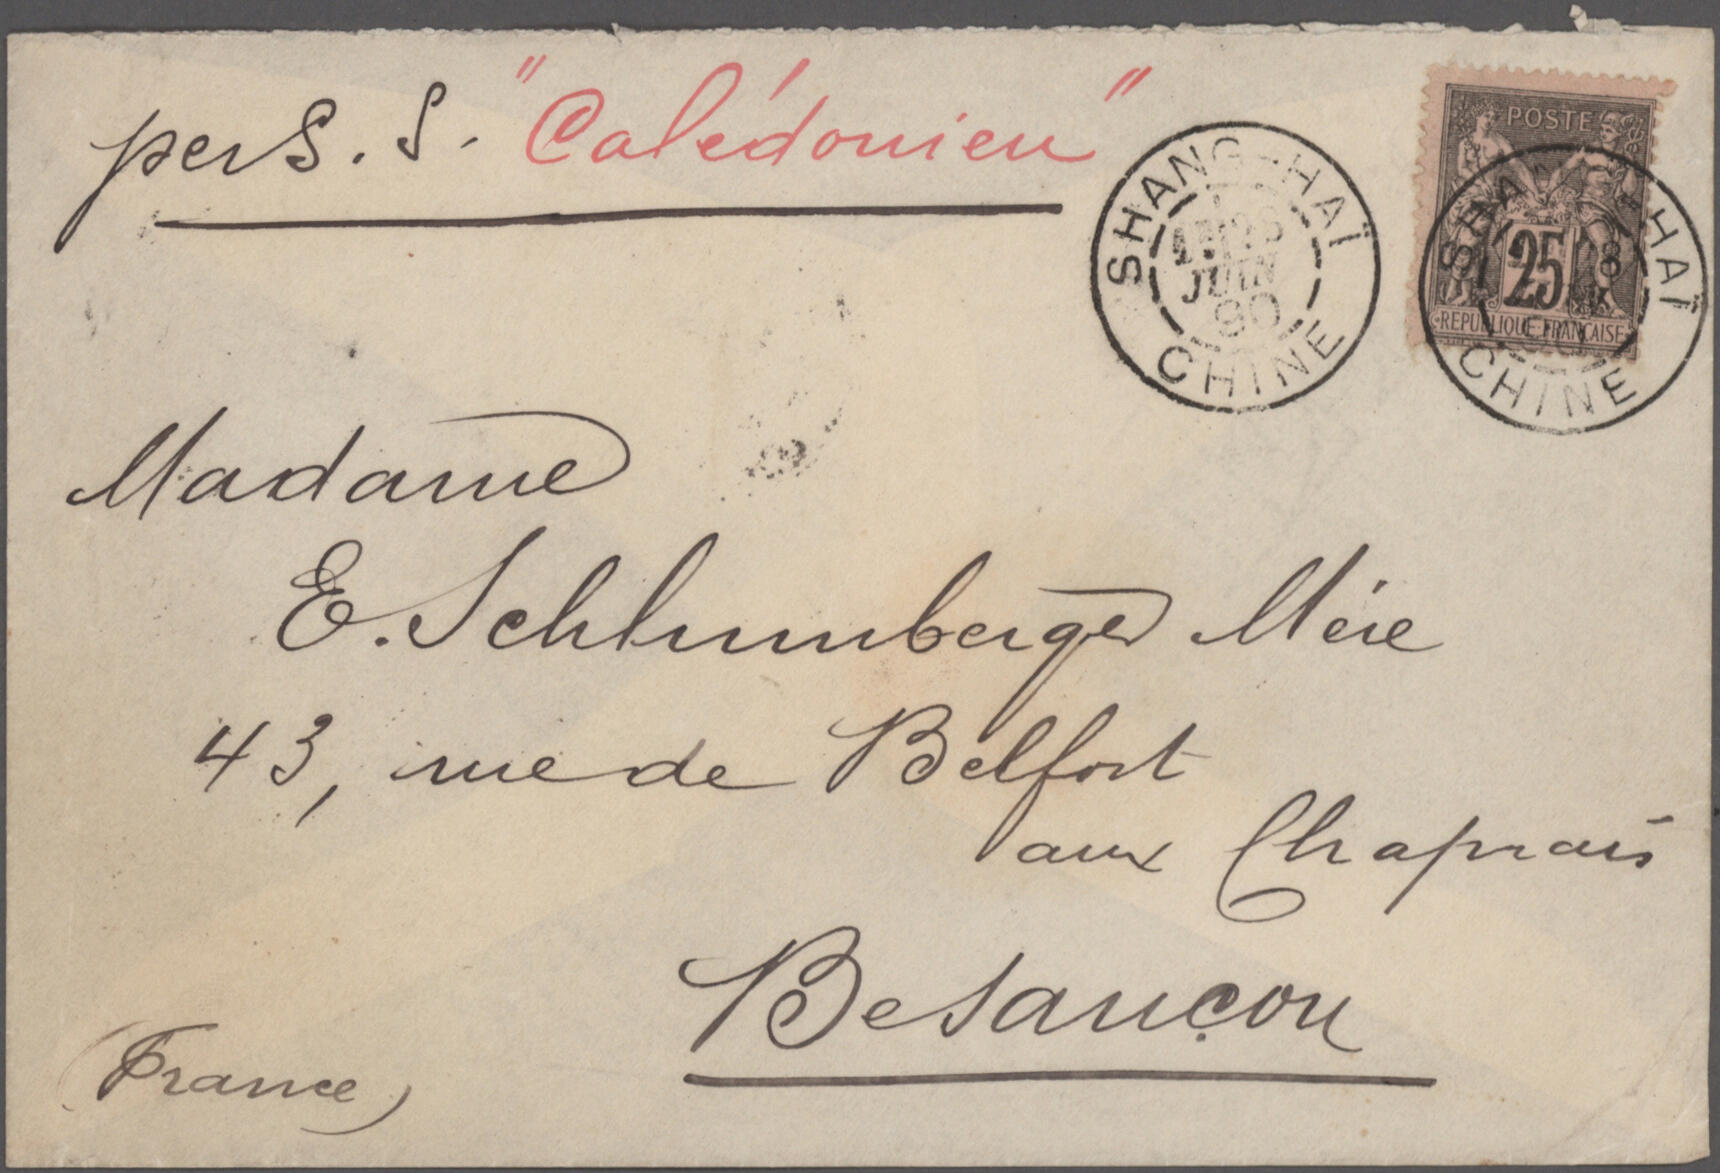 per S. S. "Calédonien"
SHANG-HAÏ
JUIN
90
CHINE
POSTE
25
REPUBLIQUE FRANCAISE
SHANG-HAÏ
CHINE
Madame
E. Schlumberger Mère
43, rue de Belfort
aux Chaprais
Besançon
(France)